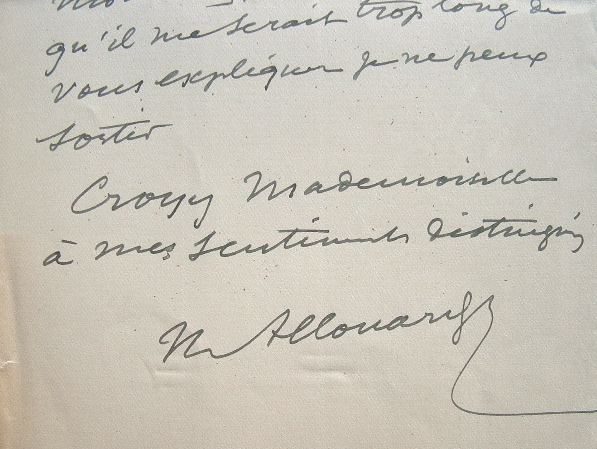 qu'il me serait trop long de
vous expliquer je ne peux
sortir
Croyez Mademoiselle
à mes sentiments distingués
Allouard